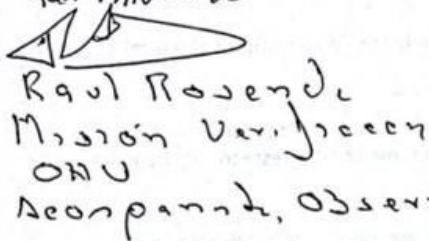 Raul Rosende
Misión Verificacion
ONU
Acompañante, Obser